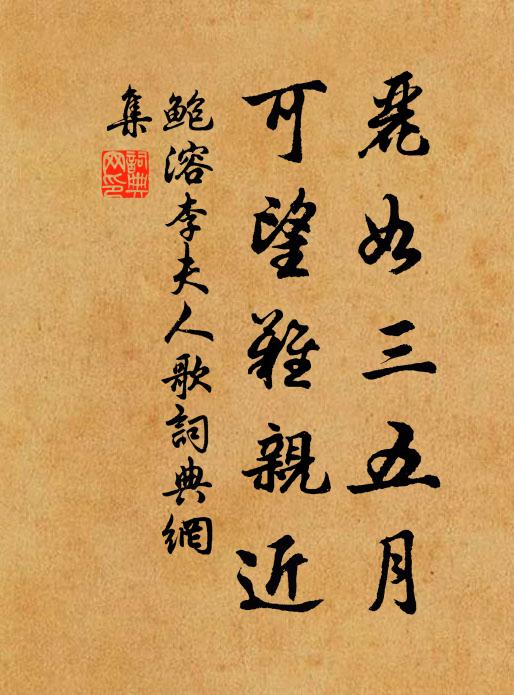 麗如三五月
可望難親近
鮑溶李夫人歌詞典網
集
詞典
网印